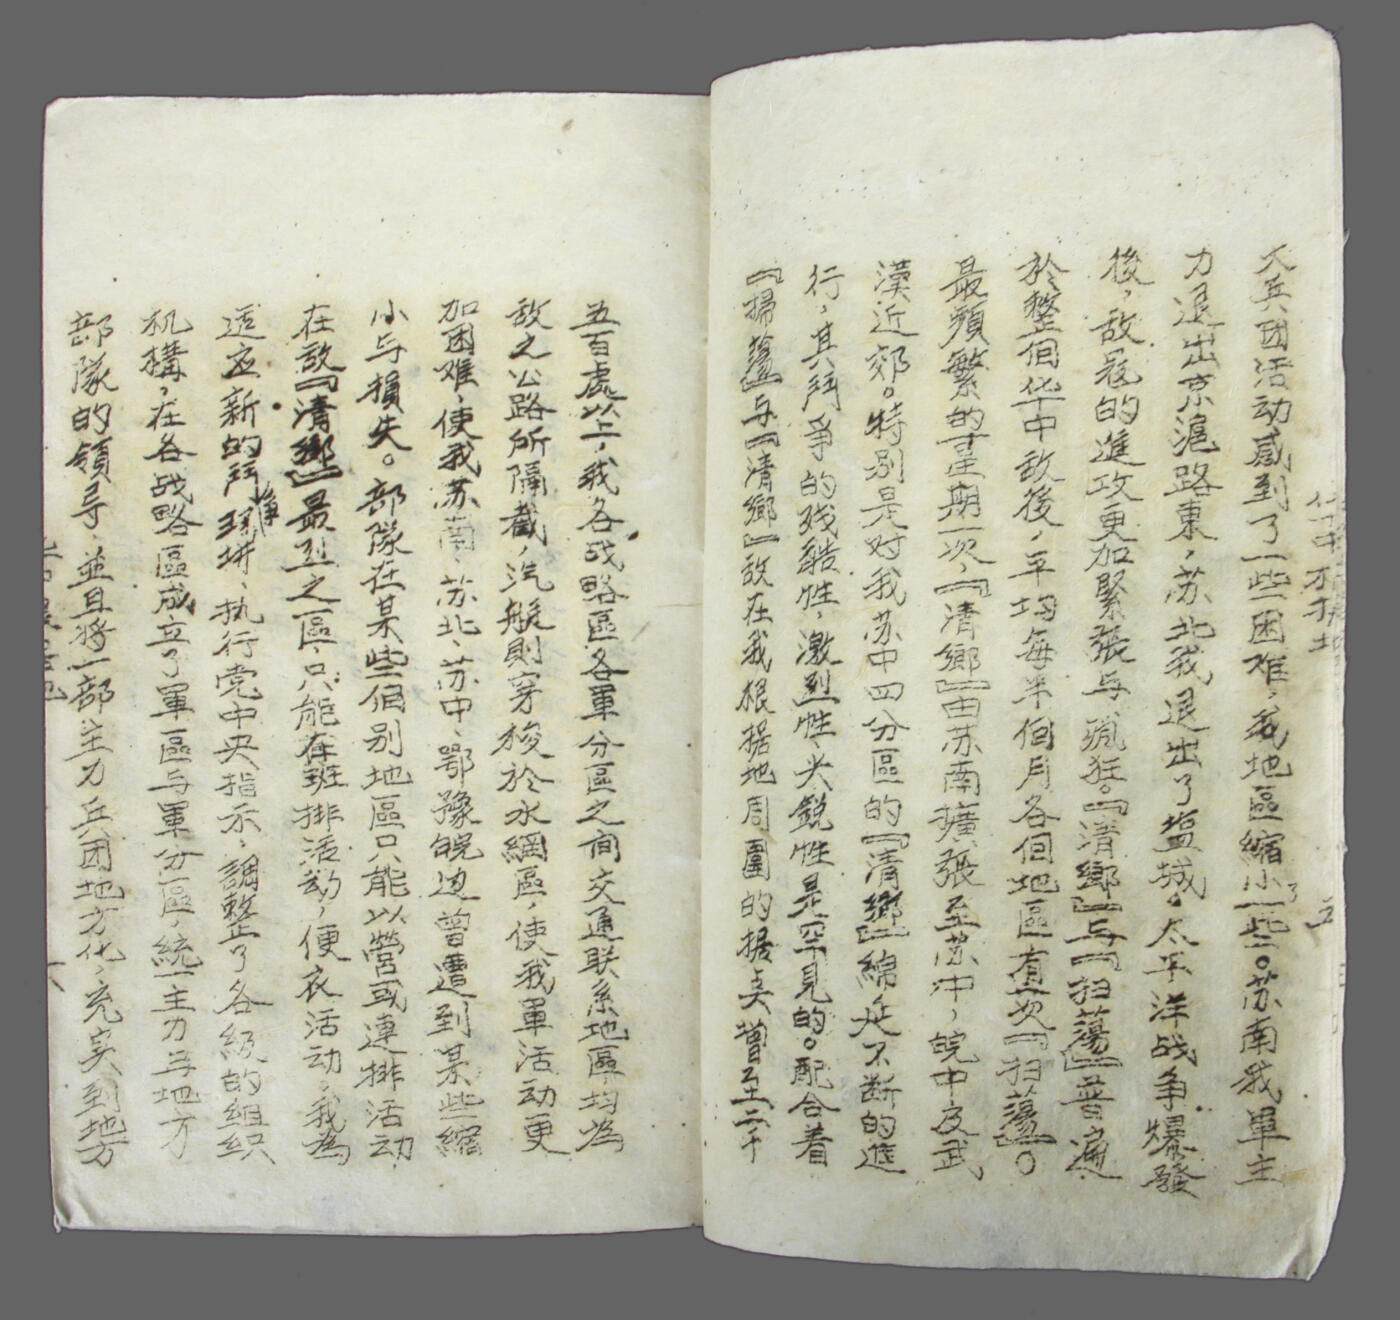 大兵团活动感到了一些困难，我地區缩小了一些。苏南我軍主
力退出京滬路東，苏北我退出了塩城。太平洋战争爆發
後，敌寇的進攻更加緊張与疯狂。『清鄉』与『扫蕩』普遍
於整個华中敌後，平均每半個月各個地區有一次『扫蕩』。
最頻繁的一星期一次，『清鄉』由苏南擴張至苏中，皖中及武
漢近郊。特別是对我苏中四分區的『清鄉』綿延不断的進
行，其鬥爭的残酷性，激烈性、尖銳性是罕見的。配合着
『掃蕩』与『清鄉』敌在我根据地周圍的据点曾至二千
五百處以上，我各战略區各軍分區之间交通联系地區均為
敌之公路所隔截，汽艇則穿梭於水網區，使我軍活动更
加困难，使我苏南、苏北、苏中、鄂豫皖边曾遭到某些縮
小与損失。部隊在某些個别地區只能以營或連排活动，
在敌『清鄉』最烈之區，只能有班排活动，便衣活动，我為
适应新的鬥争环境，执行党中央指示，調整了各級的组织
机構，在各战略區成立了軍區与軍分區，統一主力与地方
部隊的領导，並且将一部主力兵团地方化，充实到地方